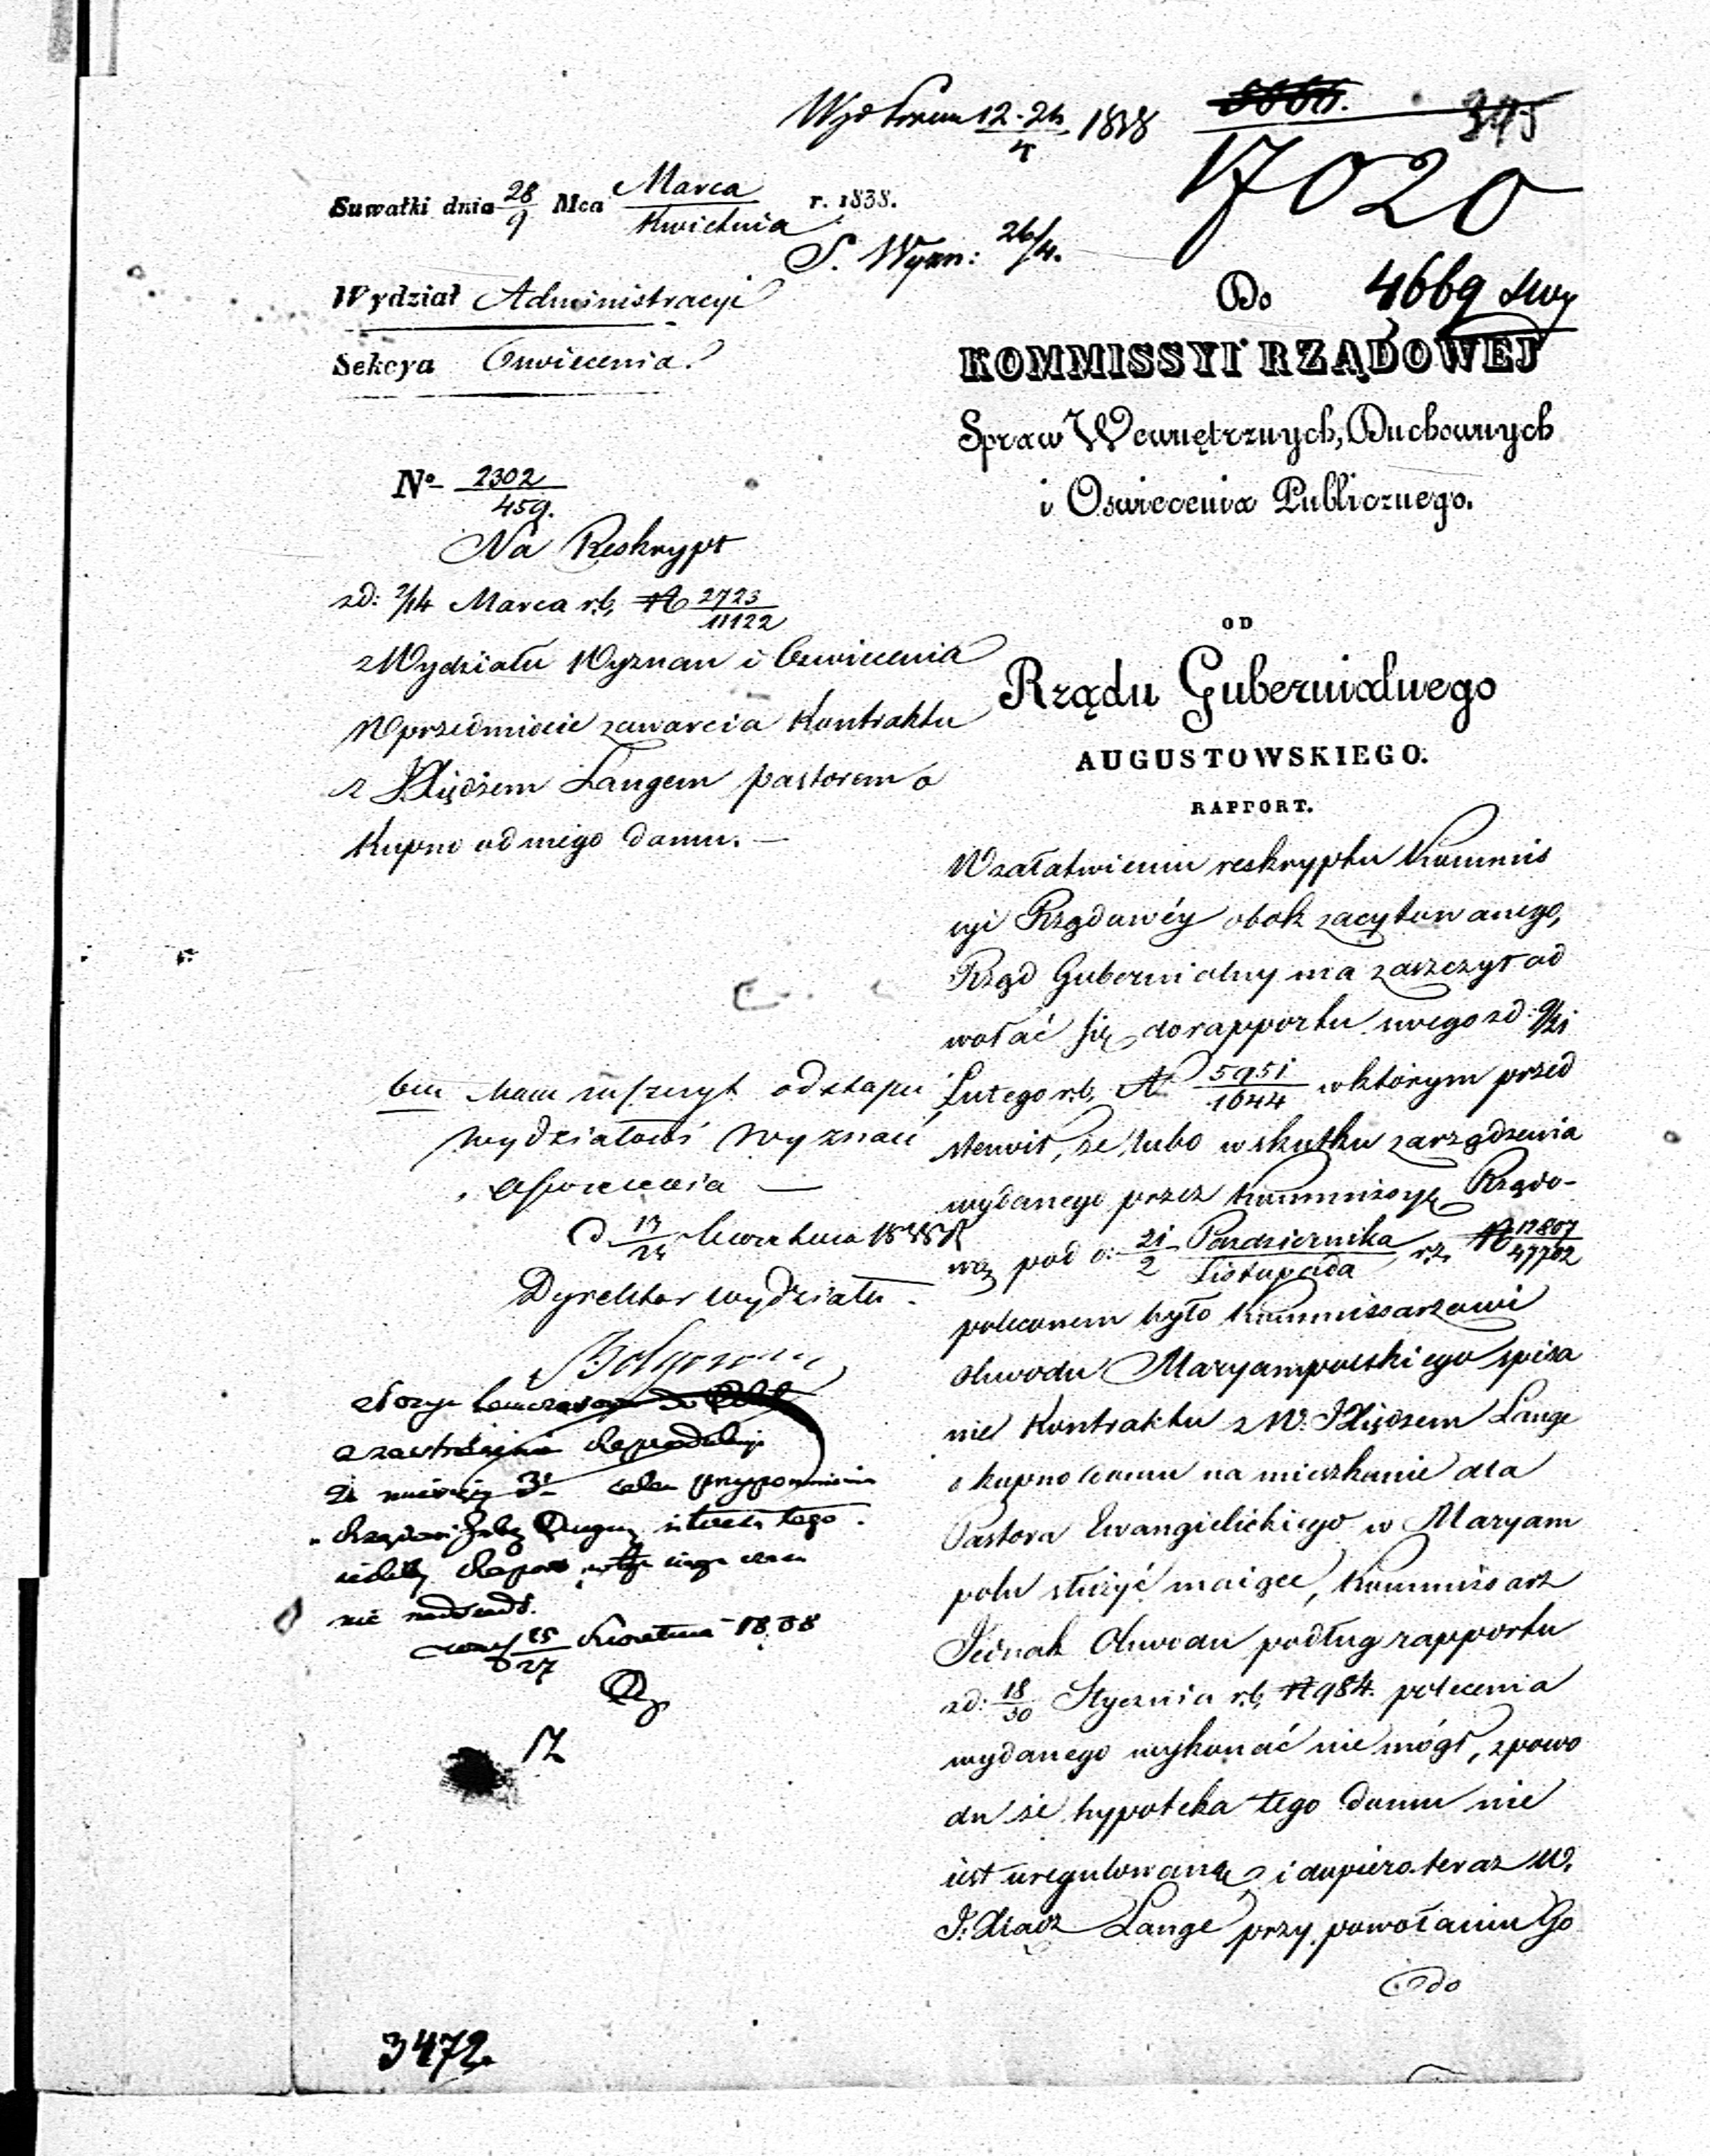 12-24/4 1838
345
17020
Suwałki dnia 28/9 Mca Marca/Kwietnia r. 1838.
S. Wyzn: 26/4.
Wydział Administracyi
Do 4669
Sekcya Oswiecenia.
KOMMISSYI RZĄDOWEJ
Spraw Wewnętrznych, Duchownych
i Oswiecenia Publicznego.
No 2302/459.
Na Reskrypt
zd: 2/14 Marca r.b. N 2723/11122
z Wydziału Wyznań i Oswiecenia
w przedmiocie zawarcia Kontraktu
z JXiędzem Langem pastorem o
Kupno od niego domu. —
OD
Rządu Gubernialnego
AUGUSTOWSKIEGO.
RAPPORT.
W załatwieniu reskryptu Kommis
syi Rządowéy obok zacytowanego,
Rząd Gubernialny ma zaszczyt od
wołać się do rapportu swego zd: 9/21
Lutego r.b. N 5951/1644 w którym przed
stawił, że lubo w skutku zarządzenia
wydanego przez Kommissyę Rządo-
wą pod d: 21/2 Pazdziernika/Listopada r.z. N 12807/47702
poleconem było Kommissarzowi
Obwodu Maryampolskiego spisa
nie Kontraktu z W. JXiędzem Lange
o kupno domu na mieszkanie dla
Pastora Ewangielickiego w Maryam
polu służyć maiące, Kommissarz
Jednak Obwodu podług rapportu
zd: 18/30 Stycznia r.b. N 984. polecenia
wydanego wykonać nie mógł, z powo
du że hypoteka tego domu nie
iest uregulowaną, i dopiero teraz W.
J. Xiądz Lange przy powołaniu Go
do
Mam zaszczyt odstąpić
Wydziałowi Wyznań
Oswiecenia —
Kwietnia 1838 R
Dyrektor Wydziału.
celem przypomnienia
nie nadesłał.
25/27 Kwietnia 1838
3472.